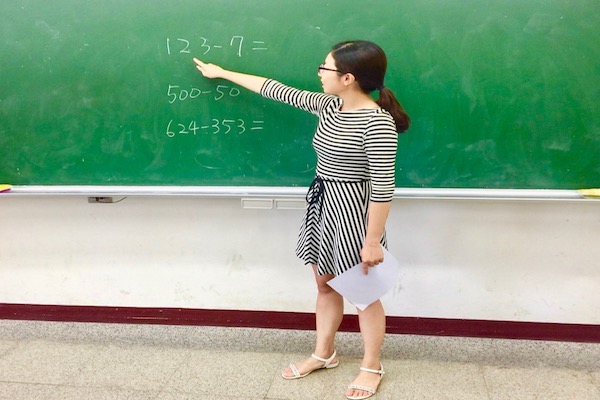 123-7=
500-50
624-353=